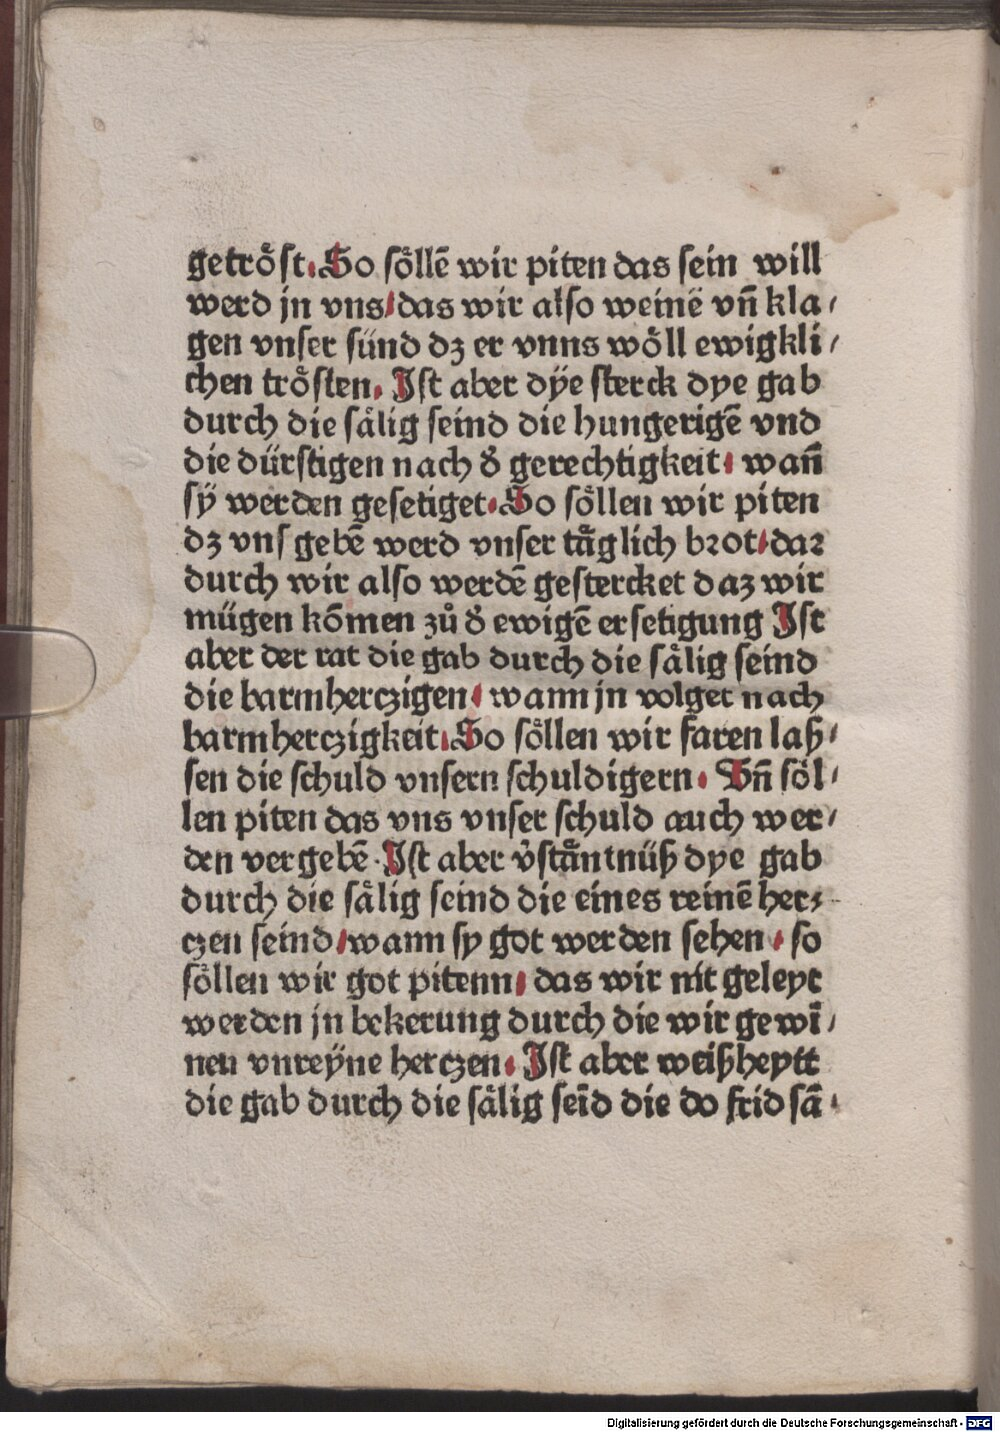 getroͤſt. So ſoͤllē wir piten das sein will
werd jn vns/das wir alſo weinē vn̄ kla⸗
gen vnſer ſünd dz er vnns woͤll ewigkli⸗
chen troͤſten. Iſt aber dÿe ſterck dye gab
durch die ſaͤlig ſeind die hungerigē vnd
die dürſtigen nach đ gerechtigkeit/ wan̄
ſÿ werden geſetiget. So ſoͤllen wir piten
dz vnſ gebē werd vnſer taͤglich brot/daꝛ
durch wir alſo werdē geſtercket daz wir
mügen kōmen zuͦ đ ewigē erſetigung Iſt
aber der rat die gab durch die ſaͤlig ſeind
die barmherczigen/ wann jn volget nach
barmherczigkeit. So ſoͤllen wir faren laß⸗
ſen die ſchuld vnſern ſchuldigern. Vn̄ ſoͤl⸗
len piten das vns vnſer ſchuld auch wer⸗
den vergebē. Iſt aber v̓ſtaͤntnüß dye gab
durch die ſaͤlig ſeind die eines reinē her⸗
czen ſeind/wann ſy got werden ſehen/ ſo
ſoͤllen wir got pitenn/ das wir nit geleyt
werden jn bekerung durch die wir gewī⸗
nen vnreÿne herczen. Iſt aber weißheytt
die gab durch die ſaͤlig ſeīd die do fridſā⸗
Digitalisierung gefördert durch die Deutsche Forschungsgemeinschaft - DFG